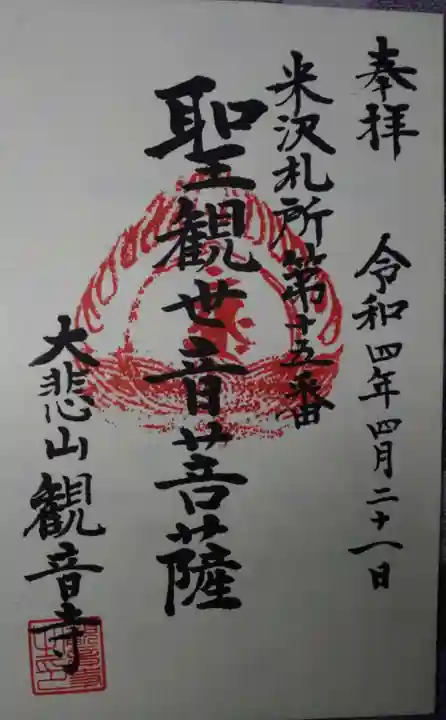 奉拝 令和四年四月二十一日
米沢札所第十五番
聖観世音菩薩
大悲山観音寺